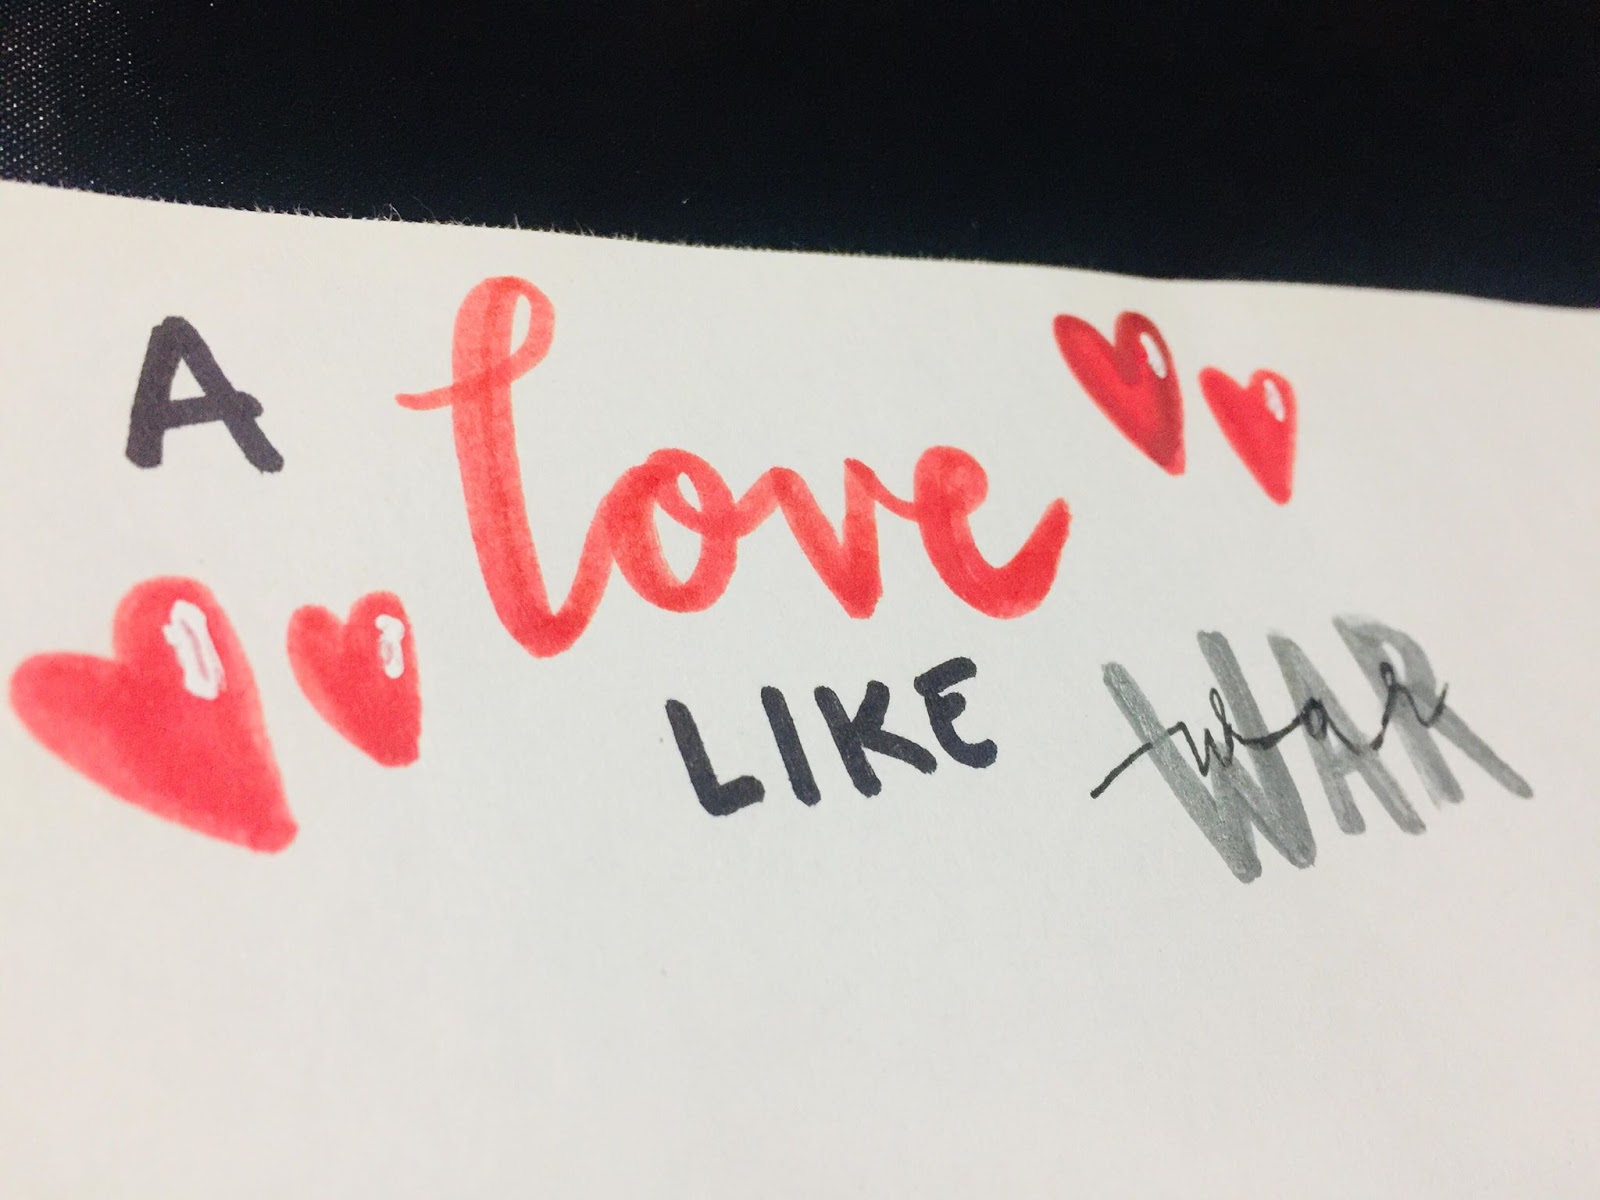 A love
LIKE WAR
war